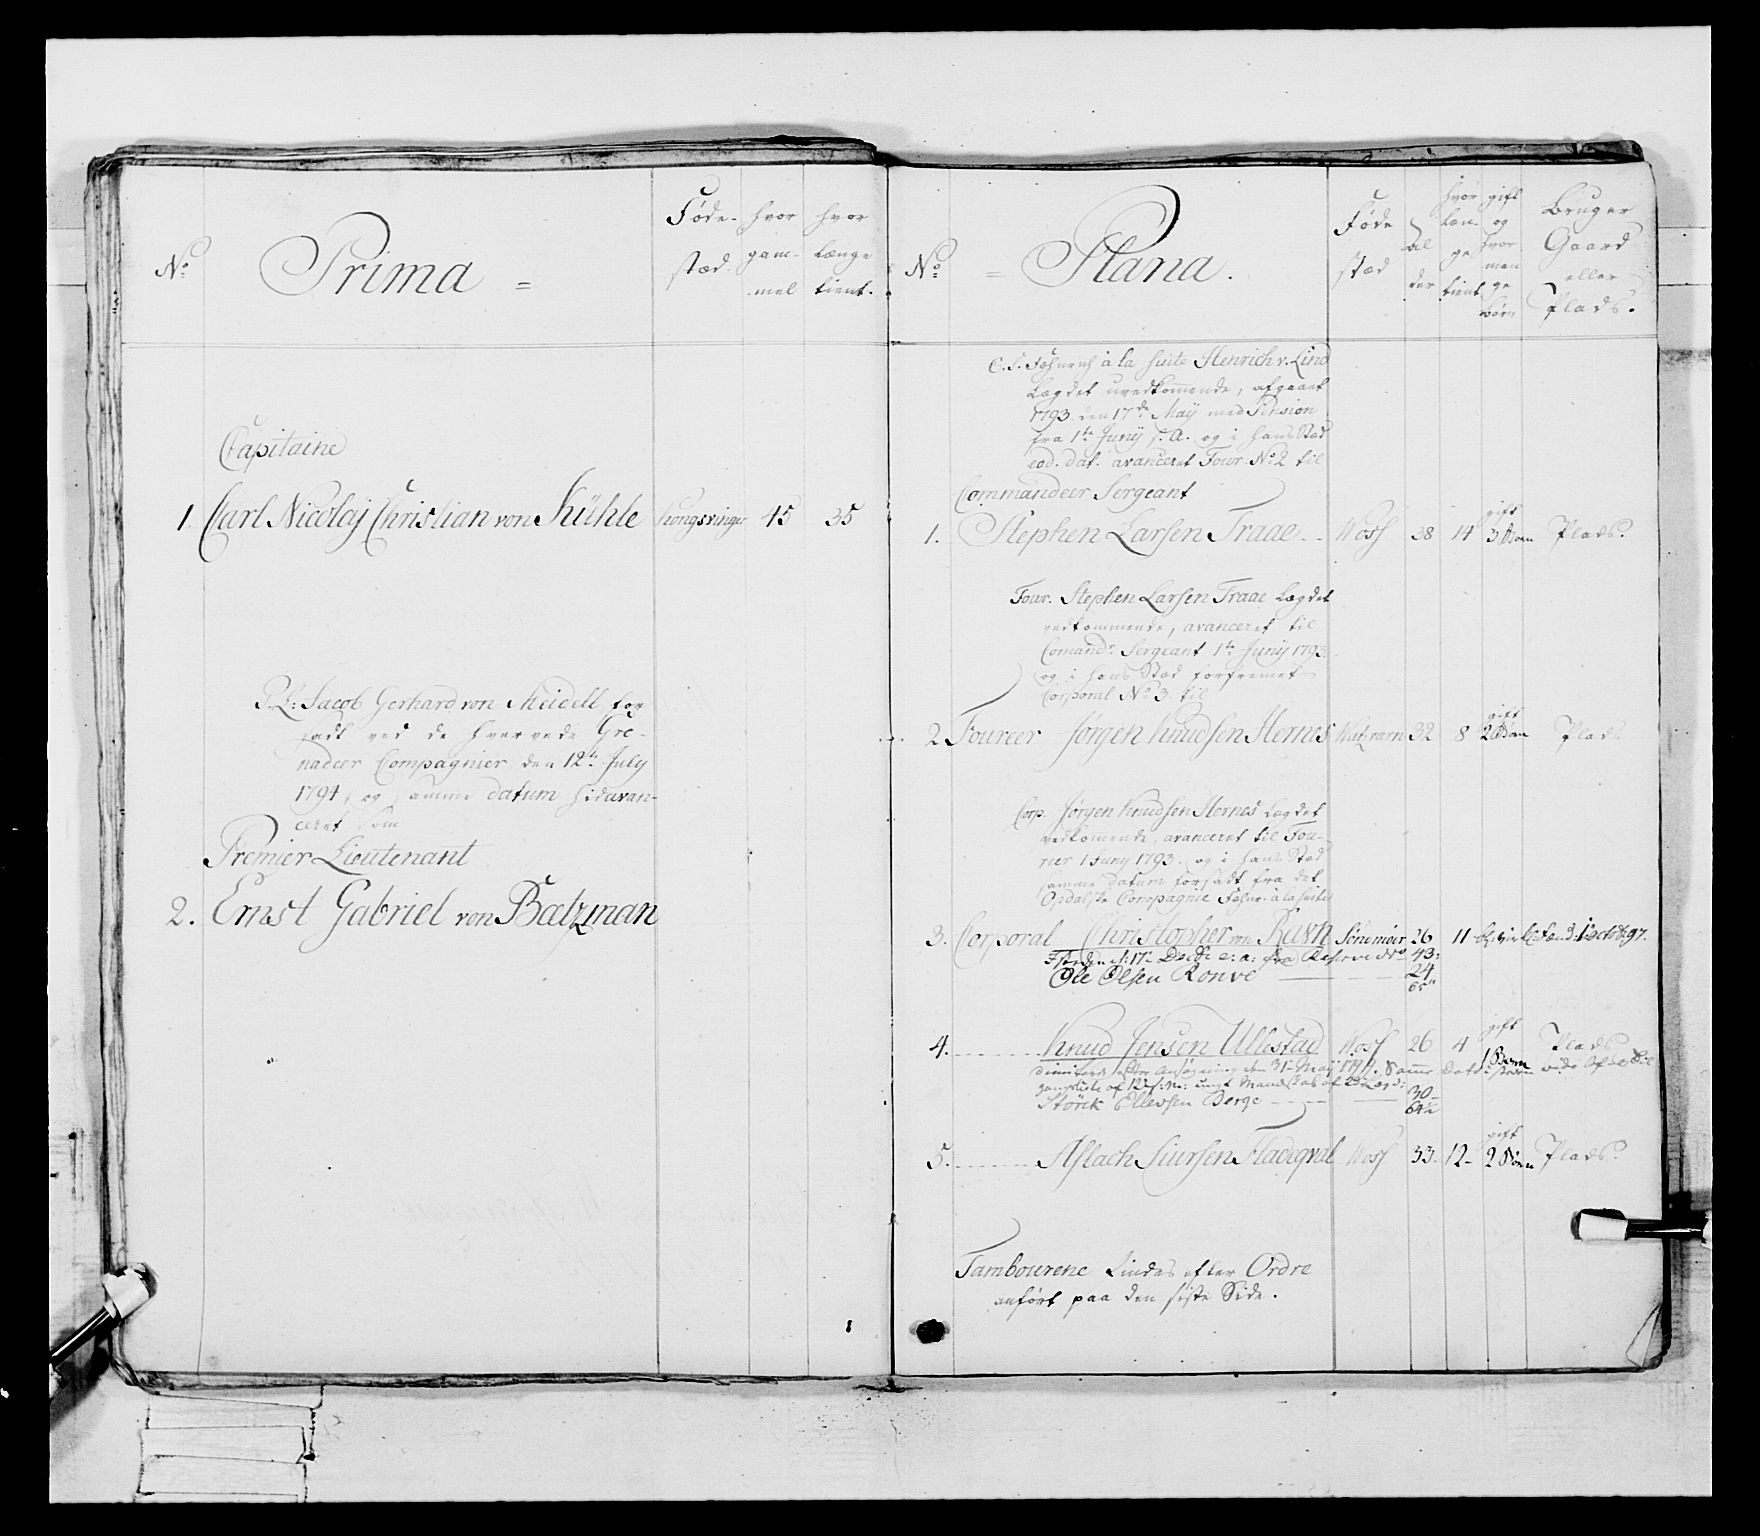 No
Prima =
Føde-
stæd
hvor
gam-
mel
hvor
længe
tient.
Capitaine
1. Carl Nicolaj Christian von Kühle Kongsvinger 45 35
P. L: Jacob Gerhard von Meidell for
sadt ved de hververde Gre-
nadeer Compagnier den 12te July
1794, og samme datum hid avan-
ceret som
Premier Lieutenant
2. Ernst Gabriel von Bætzman
No
= Plana.
Føde
stæd
Al
der
hvor
læn-
ge
tient
gift
og
hvor
man
ge
Børn
Bruger
Gaard
eller
Plads.
C. S. Fehnrich à la suite Henrich v. Lind
Lægdet uvedkommende, afgaaet
1793 den 17de Maij med Pension
fra 1te Junij s. A. og i hans Stæd
eod. dat. avanceret Four. No 2 til
Commandeer Sergeant
1. Stephen Larsen Traae - - Woss 38 14 gift 3 Børn Plads.
Four. Stephen Larsen Traae Lægdet
vedkommende, avanceret til
Comand: Sergeant 1te Junij 1793.
og i hans Stæd forfremmet
Corporal No 3. til
2 Foureer Jørgen Knudsen Hernes 32 8 gift 2 Børn Plads
Corp. Jørgen Knudsen Hernes Lægdet
vedkomende, avanceret til Fou-
reer 1 Juny 1793. og i hans Stæd
samme datum forsadt fra det
Ordalske Compagnie Fehnr. à la suite
3. Corporal Christopher von Ravn Søndmøer 26 11
Isteden d: 17de Decbr e: a: fra Reserve No 43:
Ole Olsen Ronve 24
65"
4. Knud Jensen Ullestad Woss 26 4 gift 1 Børn Plads
dimitert efter Ansøgning den 31te Maij Samme Dato isteden
30
64½
Størk Ellevsen Berge
5. Aslach Siursen Woss 33. 12- gift 2 Børn Plads.
Tambourene Lindes efter Ordre
anført paa den siste Side.